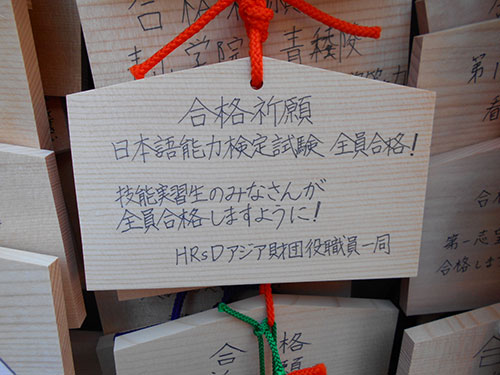 合格
学院 青稜
合格祈願
日本語能力検定試験 全員合格!
技能実習生のみなさんが
全員合格しますように!
HRsDアジア財団役職員一同
第一志
合格しま
合格